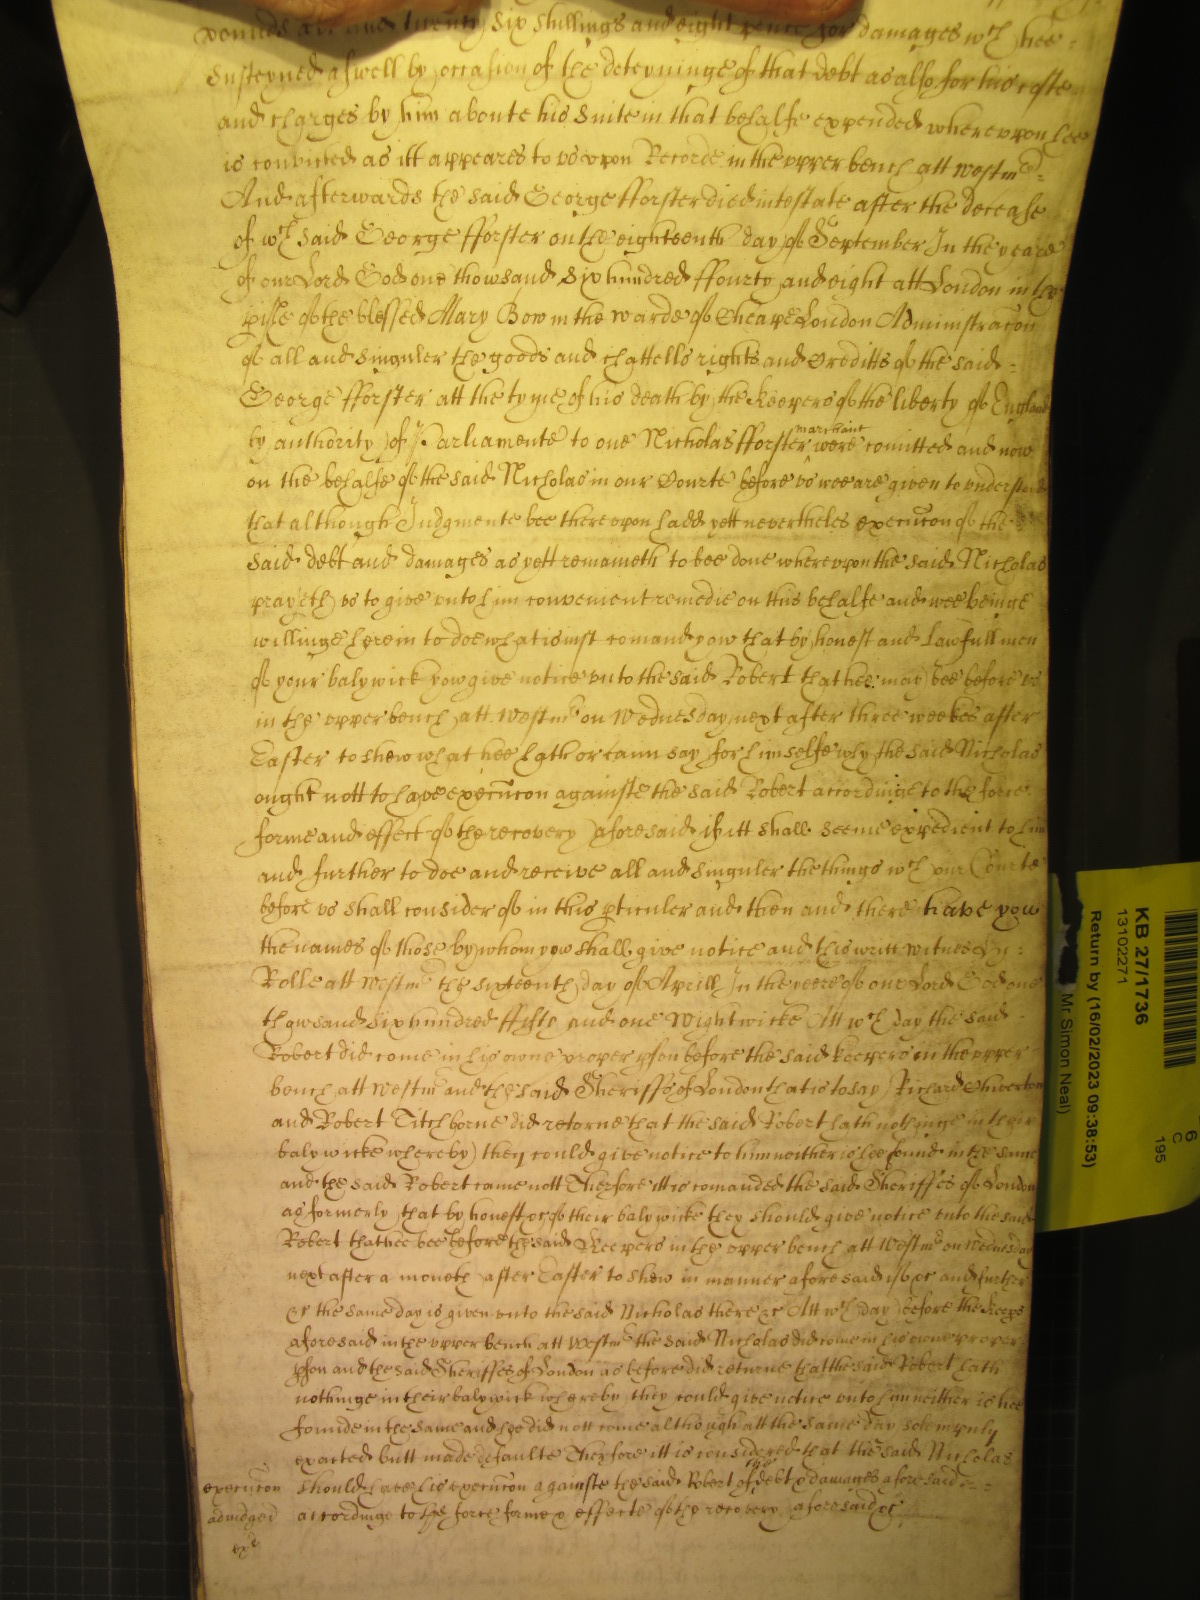 pounds and twenty six shillings and eight pence for damages wch hee =
susteyned aswell by occasion of the deteyninge of that debt as also for his coste
and charges by him aboute his suite in that behalfe expended whereupon hee
is convicted as itt appeares to us upon Recorde in the upper bench att westmr =
And afterwards the said George fforster died intestate after the decease
of wch said George fforster on the eighteenth day of September In the yeare
of our Lord God one thowsand six hundred ffourty and eight att London in the
pishe of the blessed Mary Bow in the warde of Cheape London Administracon
of all and singuler the goods and chattells rights and Creditts of the said =
George fforster att the tyme of his death by the Keepers of the liberty of England
by authority of Parliamente to one Nicholas fforster marchant were comitted and now
on the behalfe of the said Nicholas in our Courte before us wee are given to understand
that although Judgmente bee thereupon hadd yett nevertheles execucon of the
said debt and damages as yett remaineth to bee done whereupon the said Nicholas
prayeth us to give unto him convenient remedie on this behalfe and wee beinge
willinge herein to doe what is iust comand yow that by honest and lawfull men
of your balywick yow give notice unto the said Robert that hee may bee before us
in the upper bench att westmr on Wednesday next after three weekes after
Easter to shew what hee hath or cann say for himselfe why the said Nicholas
ought nott to have execucon againste the said Robert accordinge to the force
forme and effect of the recovery aforesaid if itt shall seeme expedient to him
and further to doe and receive all and singuler the things wch our Courte
before us shall consider of in this pticuler and then and there have yow
the names of those by whom yow shall give notice and this writt witnes Hy: =
Rolle att westmr the sixteenth day of Aprill In the yeere of our Lord God one
thowsand six hundred ffifty and one Wightwicke Att wch day the said
Robert did come in his owne proper pson before the said keepers in the upper
bench att westmr and the said Sheriffs of London that is to say Richard Chiverton
and Robert Titchborne did retorne that the said Robert hath nothinge in their
balywicke whereby they could give notice to him neither is hee found in the same
and the said Robert came nott Therfore itt is comanded the said Sheriffes of London
as formerly that by honest &c of their balywicke they should give notice unto the said
Robert that hee bee before the said Keepers in the upper bench att westmr on Wednesday
next after a moneth after Easter to shew in manner aforesaid if &c and further
&c the same day is given unto the said Nicholas there &c Att wch day before the Keeps
aforesaid in the upper bench att westmr the said Nicholas did come in his owne proper
pson and the said Sheriffes of London as before did returne that the said Robert hath
nothinge in their balywick whereby they could give notice unto him neither is hee
founde in the same and hee did nott come although att the same day solempnly
exacted butt made defaulte Therfore itt is considered that the said Nicholas
execucon should have his execucon againste the said Robert of the debt & damages aforesaid =
adiudged accordinge to the force forme & effecte of the recovery aforesaid &c
KB 27/1736
13102271
Return by (16/02/2023 09:38:53)
Mr Simon Neal)
6
C
195